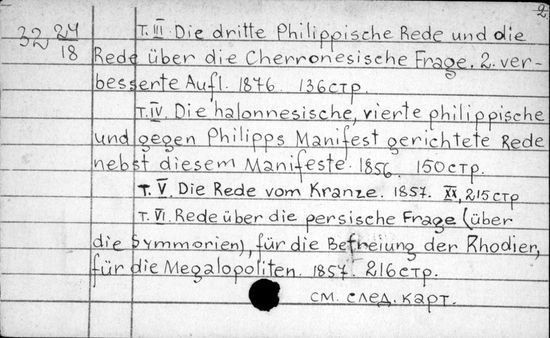 2
32 24/18
т. III. Die dritte Philippische Rede und die
Rede über die Cherronesische Frage. 2. ver-
besserte Aufl. 1876. 136 стр.
т. IV. Die halonnesische, vierte philippische
und gegen Philipps Manifest gerichtete Rede
nebst diesem Manifeste. 1856. 150 стр.
т. V. Die Rede vom Kranze. 1857. XX, 215 стр
т. VI. Rede über die persische Frage (über
die Symmorien), für die Befreiung der Rhodier,
für die Megalopoliten. 1857. 216 стр.
см. след. карт.